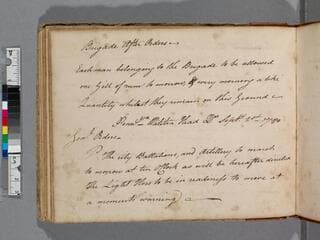 Brigade After Orders
Each man belonging to the Brigade to be allowed
one Gill of rum to morrow, & every morning a like
Quantity whilst they remain on this Ground
Head Qrs Septr 2d
Genl Orders
The City Battalions, and Artillery to march
to morrow at ten oClock as will be hereafter
The Light Horse to be in readiness to move at
a moments warning